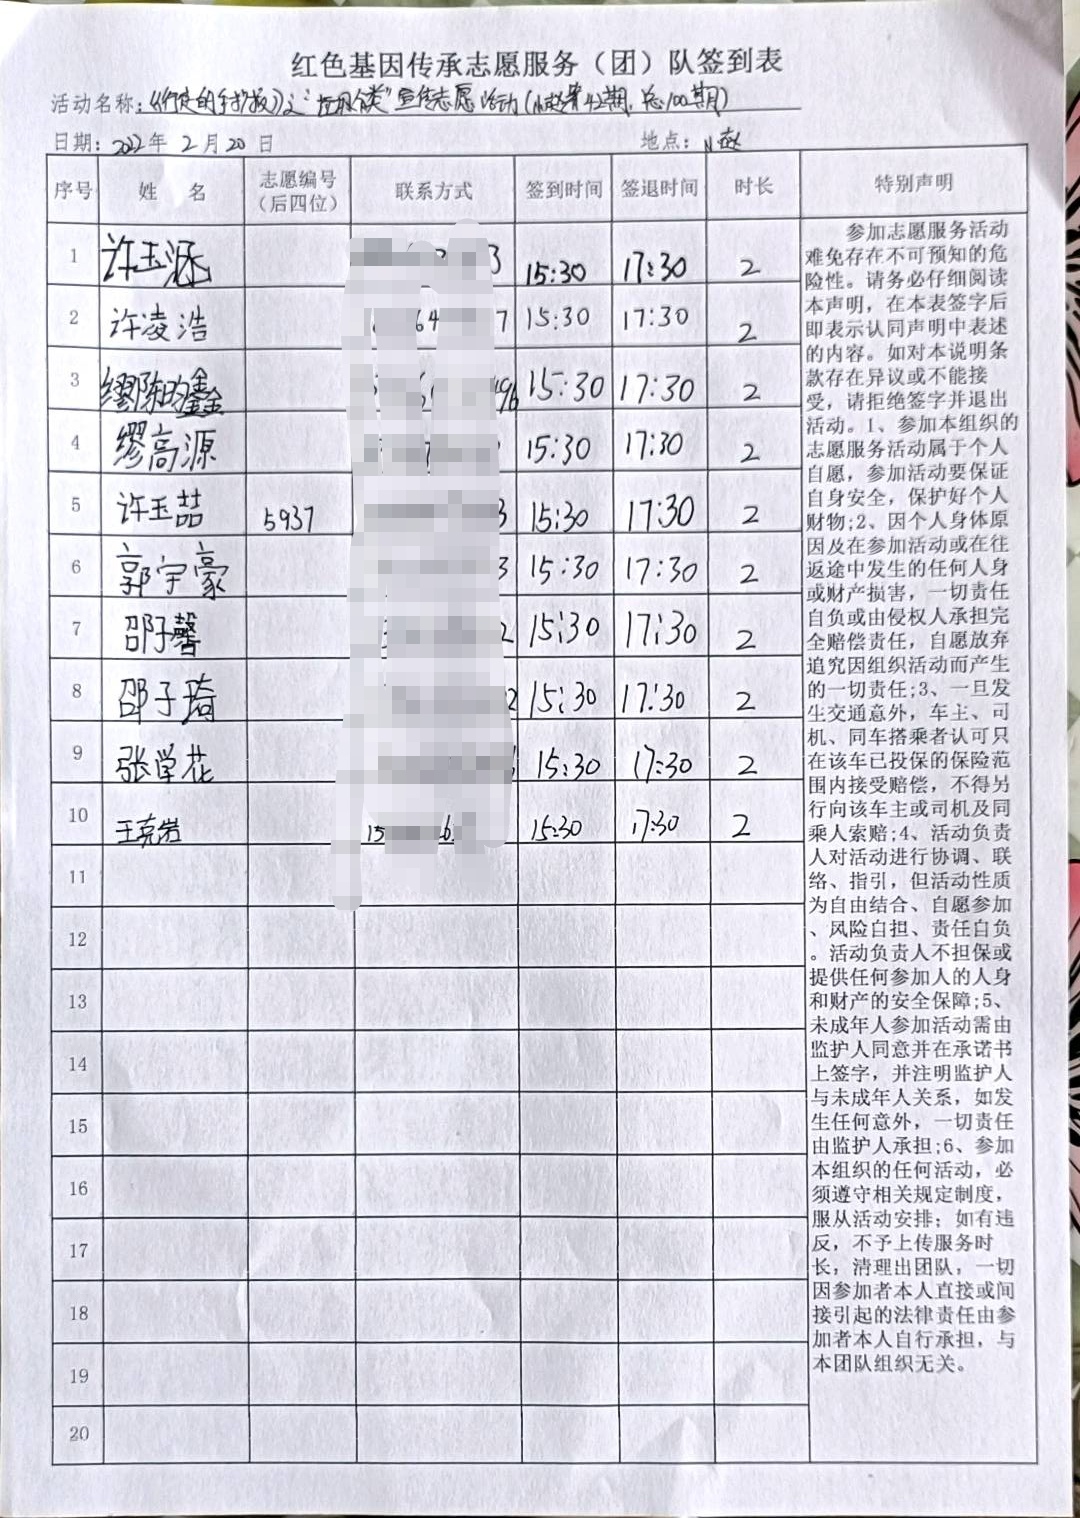 红色基因传承志愿服务（团）队签到表
活动名称：《行走的手抄报》之"垃圾分类"宣传志愿活动(小路第42期，总100期)
日期：2022年 2 月 20 日 地点：
序号 姓 名 志愿编号（后四位） 联系方式 签到时间 签退时间 时长 特别声明
1 许玉涵 3 15:30 17:30 2
2 许凌浩 64 7 15:30 17:30 2
3 15:30 17:30 2
4 缪高源 15:30 17:30 2
5 许玉喆 5937 3 15:30 17:30 2
6 郭宇豪 3 15:30 17:30 2
7 邵子馨 2 15:30 17:30 2
8 邵子琦 2 15:30 17:30 2
9 张学花 15:30 17:30 2
10 王克岩 15 6 15:30 17:30 2
11
12
13
14
15
16
17
18
19
20
参加志愿服务活动
难免存在不可预知的危
险性。请务必仔细阅读
本声明，在本表签字后
即表示认同声明中表述
的内容。如对本说明条
款存在异议或不能接
受，请拒绝签字并退出
活动。1、参加本组织的
志愿服务活动属于个人
自愿，参加活动要保证
自身安全，保护好个人
财物;2、因个人身体原
因及在参加活动或在往
返途中发生的任何人身
或财产损害，一切责任
自负或由侵权人承担完
全赔偿责任，自愿放弃
追究因组织活动而产生
的一切责任;3、一旦发
生交通意外，车主、司
机、同车搭乘者认可只
在该车已投保的保险范
围内接受赔偿，不得另
行向该车主或司机及同
乘人索赔;4、活动负责
人对活动进行协调、联
络、指引，但活动性质
为自由结合、自愿参加
、风险自担、责任自负
。活动负责人不担保或
提供任何参加人的人身
和财产的安全保障;5、
未成年人参加活动需由
监护人同意并在承诺书
上签字，并注明监护人
与未成年人关系，如发
生任何意外，一切责任
由监护人承担;6、参加
本组织的任何活动，必
须遵守相关规定制度，
服从活动安排；如有违
反，不予上传服务时
长，清理出团队，一切
因参加者本人直接或间
接引起的法律责任由参
加者本人自行承担，与
本团队组织无关。